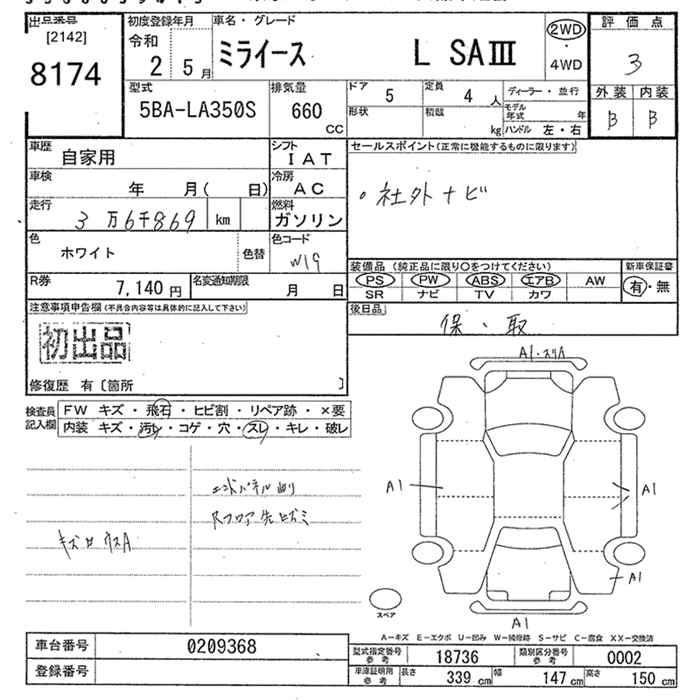 出品番号
[2142]
8174
初度登録年月
令和
2 5月
車名・グレード
ミライース L SAⅢ
2WD
4WD
評価点
3
外装 内装
B B
型式
5BA-LA350S
排気量
660
CC
ドア
5
定員
4 人
形状
積載
kg
ディーラー・並行
モデル年式 年
ハンドル 左・右
車歴
自家用
シフト
IAT
車検
年 月( 日)
冷房
AC
走行
3万6千869 km
燃料
ガソリン
色
ホワイト
色替
色コード
W19
R券
7,140円
名変通知期限
月 日
セールスポイント(正常に機能するものに限ります)
。社外ナビ
装備品 (純正品に限り〇をつけてください)
PS PW ABS エアB AW
SR ナビ TV カワ
新車保証書
有・無
後日品
保・取
注意事項申告欄(不具合内容等は具体的に記入して下さい)
初出品
修復歴 有〔箇所 〕
検査員記入欄
FW キズ・飛石・ヒビ割・リペア跡・×要
内装 キズ・汚レ・コゲ・穴・スレ・キレ・破レ
エンドパネル凹
Rフロア先ヒズミ
A1・スリA
A1
A1
A1
A1
スペア
A-キズ E-エクボ U-凹み W-補修跡 S-サビ C-腐食 XX-交換済
車台番号
0209368
登録番号
型式指定番号 参考
18736
類別区分番号 参考
0002
車庫証明用 参考
長さ 339 cm
幅 147 cm
高さ 150 cm